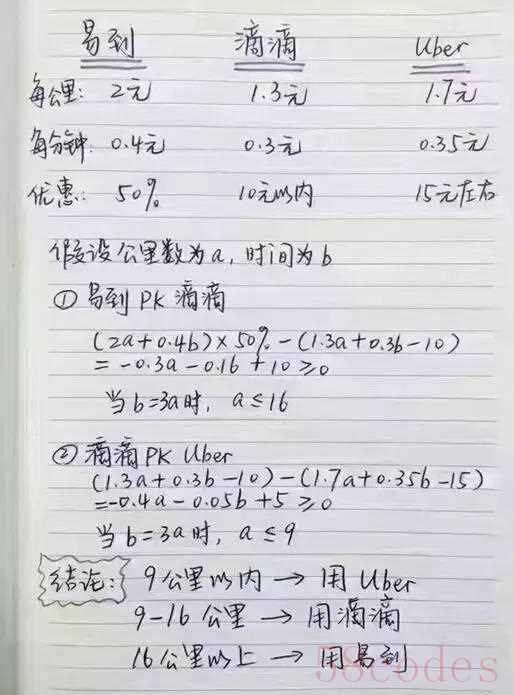 易到 滴滴 Uber
每公里: 2元 1.3元 1.7元
每分钟: 0.4元 0.3元 0.35元
优惠: 50% 10元以内 15元左右
假设公里数为a,时间为b
① 易到 PK 滴滴
(2a+0.4b)×50%-(1.3a+0.3b-10)
=-0.3a-0.1b+10≥0
当b=3a时, a≤16
② 滴滴 PK Uber
(1.3a+0.3b-10)-(1.7a+0.35b-15)
=-0.4a-0.05b+5≥0
当b=3a时, a≤9
结论: 9公里以内→用Uber
9-16公里→用滴滴
16公里以上→用易到
58codes